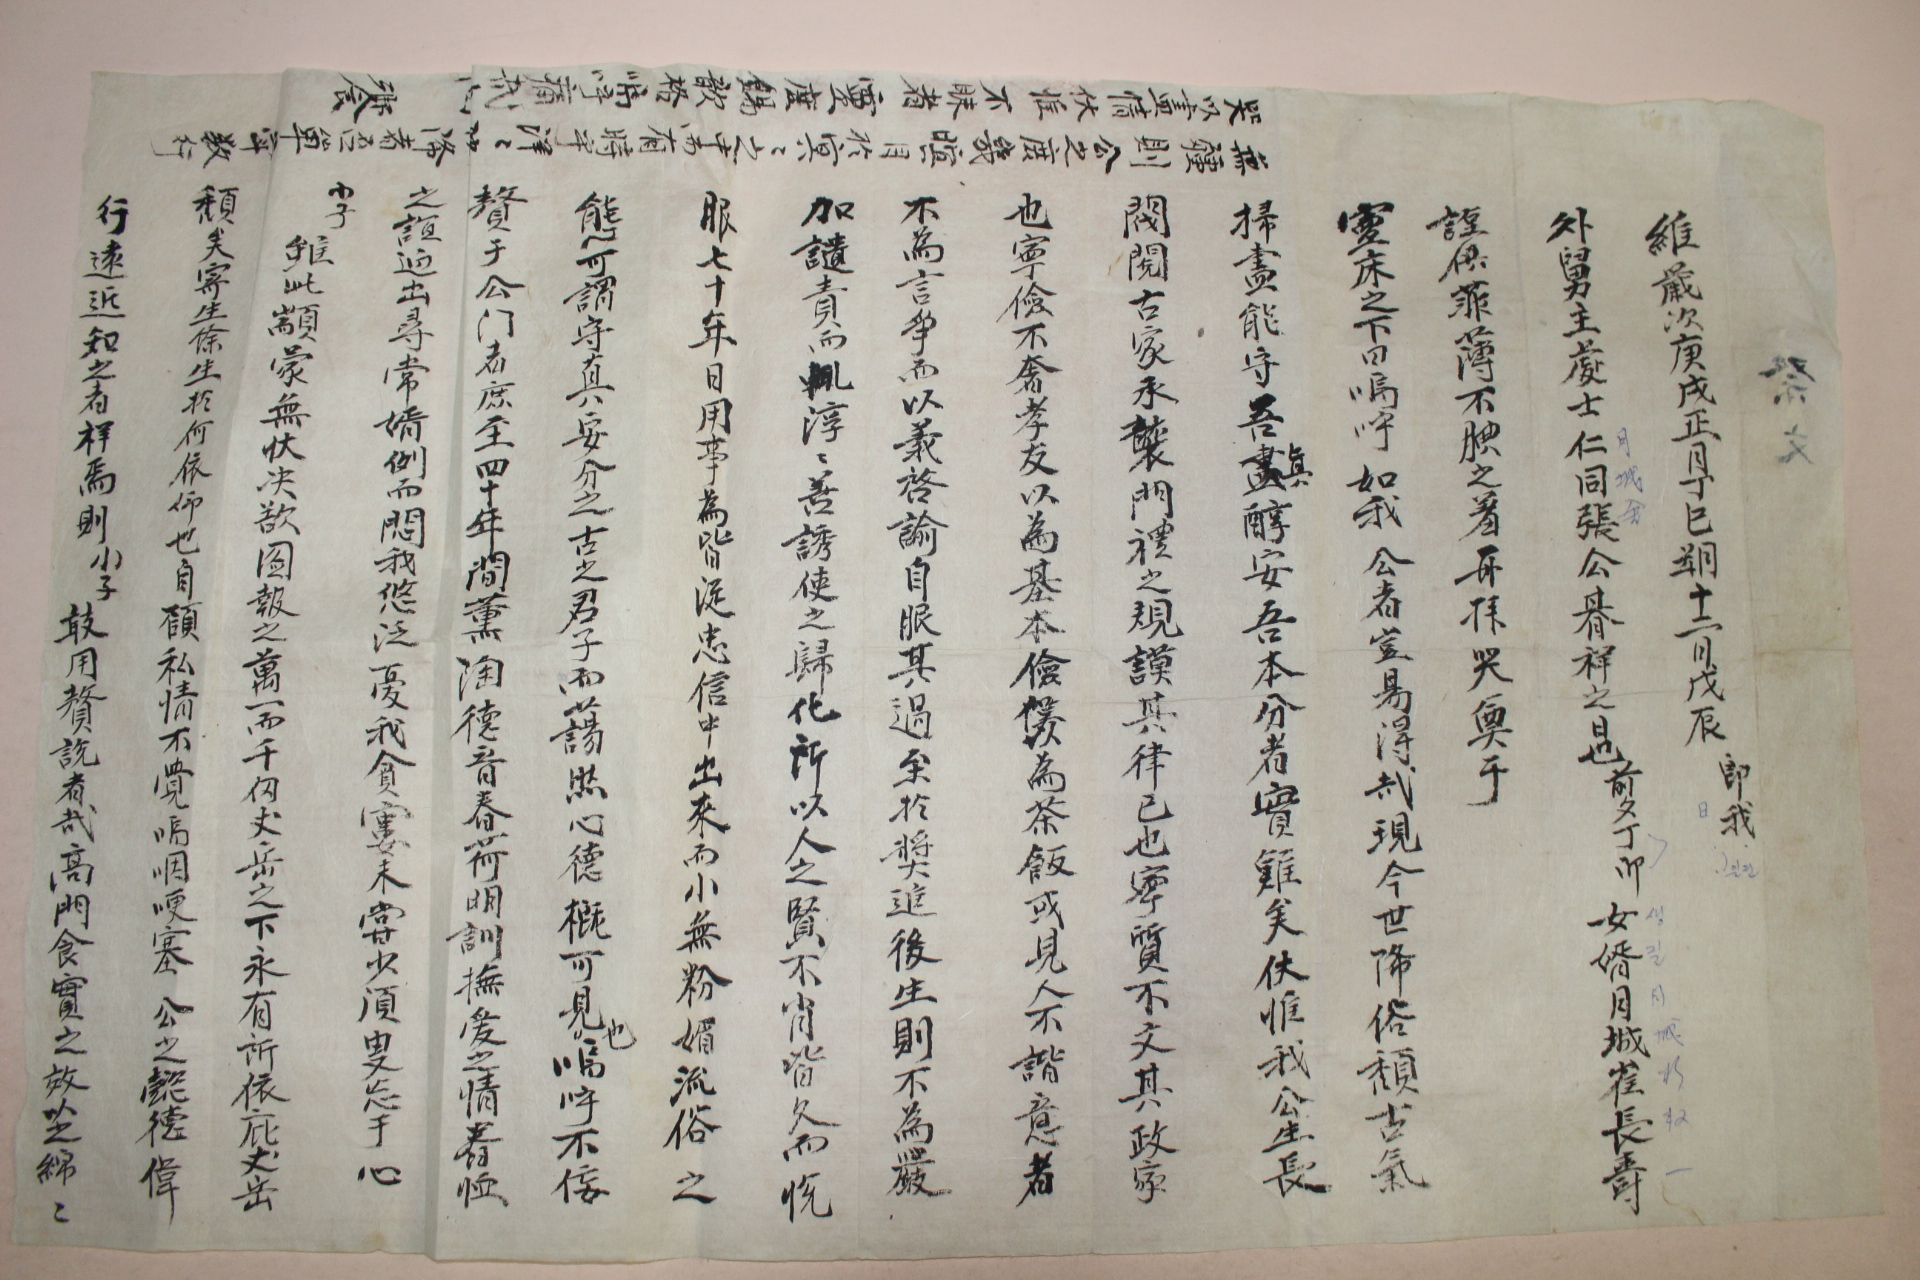 祭文
維歲次庚戌正月丁巳朔十二日戊辰 卽我
外舅主處士仁同張公朞祥之日也 前夕丁卯 女婿月城崔長壽
謹供菲薄不腆之着再拜哭奠于
靈床之下曰嗚呼 如我 公者豈易得哉現今世降俗頹古氣
掃盡能守吾眞醇安吾本分者實難矣伏惟我公生長
閥閱古家承襲門禮之規謹其律己也寧質不文其政家
也寧儉不奢孝友以爲基本儉爲茶飯或見人不諧意者
不爲言爭而以義啓諭自服其過至於奬進後生則不爲嚴
加譴責而輒淳〻善誘使之歸化所以人之賢不肖皆久而悅
服七十年日用事爲皆從忠信中出來而小無粉媚流俗之
態可謂守眞安分之古之君子而藹然心德槪可見也嗚呼不佞
贅于公门者庶至四十年間薰陶德音春荷明訓撫愛之情眷恤
之誼逈出尋常婿例而悶我悠泛憂我貧窶未嘗少須臾忘于心
小子 雖此顓蒙無狀决欲圖報之萬一而千仞丈岳之下永有所依庇丈岳
頹矣寄生餘生於何依仰也自顧私情不覺嗚咽哽塞 公之懿德偉
行遠近知之者祥焉則 小子 敢用贅說者哉高門食實之效 綿〻
無疆則 公之庶幾 瞑目於冥〻之中 有時乎洋〻 如降者
哭以盡情伏惟不昧者靈庶賜歆格嗚呼痛哉 尙
饗
月城金
日